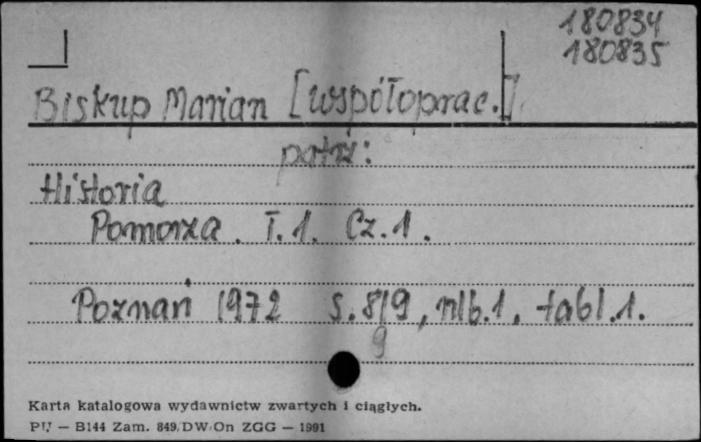 180834
180835
Biskup Marian [współoprac.]
patrz:
Historia
Pomorza. T.1. Cz.1.
Poznań 1972 s.819, nlb.1, tabl.1.
9
Karta katalogowa wydawnictw zwartych i ciągłych.
PU — B144 Zam. 849/DW/On ZGG — 1991